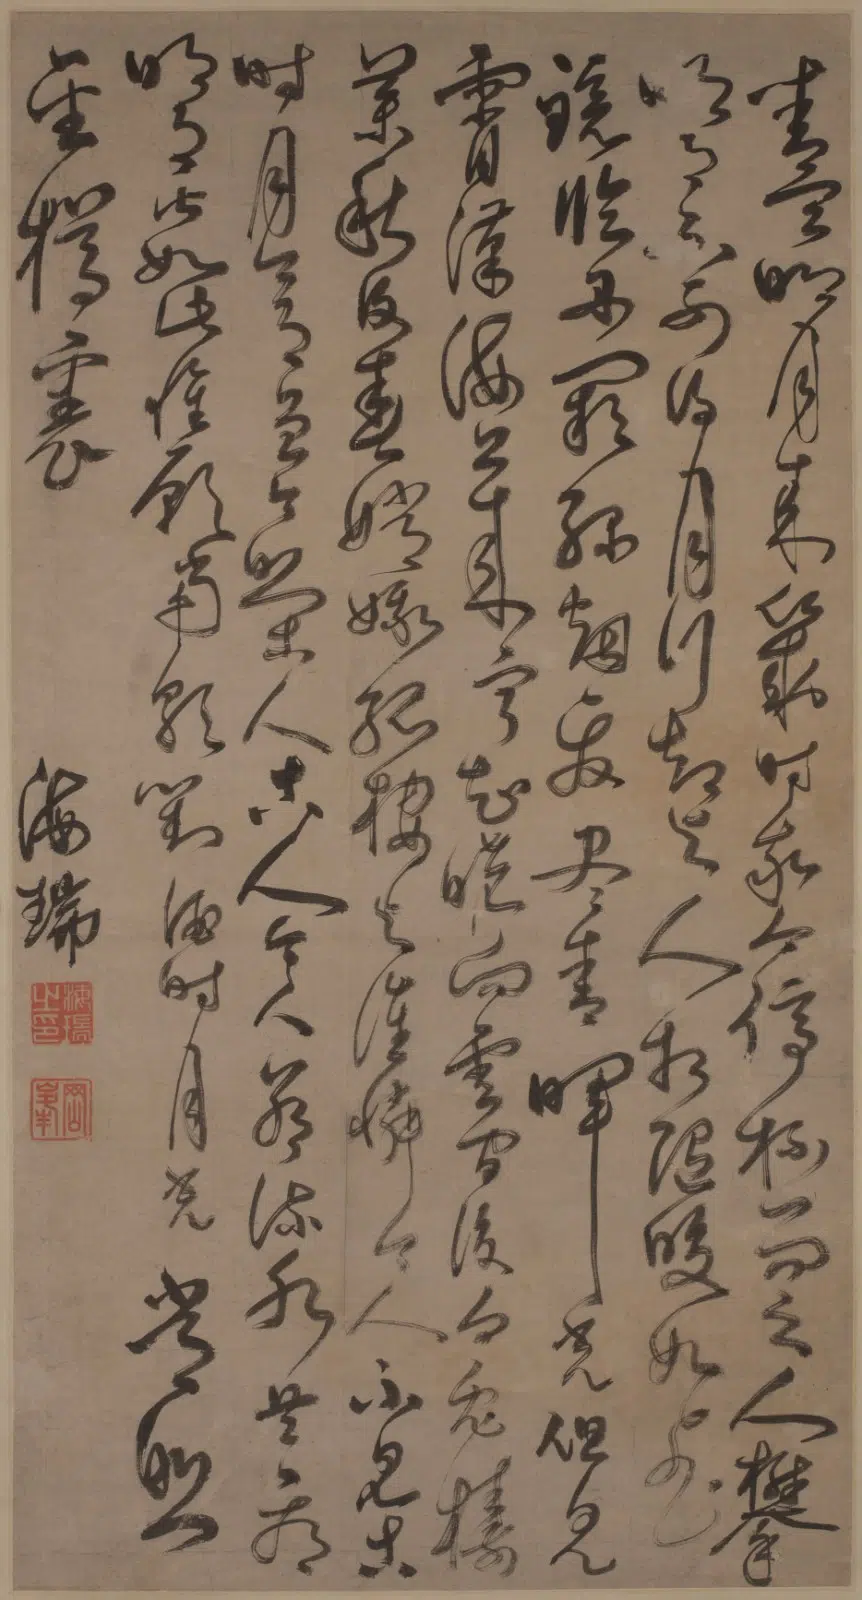 青空明月來幾時我今停杯一問之人攀
明月不可得月行却與人相隨皎如飛
鏡臨丹闕綠烟滅盡清暉光但見
霄從海上來寧知曉向雲間沒白兔擣
藥秋復春嫦娥孤棲與誰憐今人不見古
時月今月曾今照古人古人今人若流水共看
明月皆如此惟願當歌對酒時月光常照
金樽裏
海瑞
海瑞之印